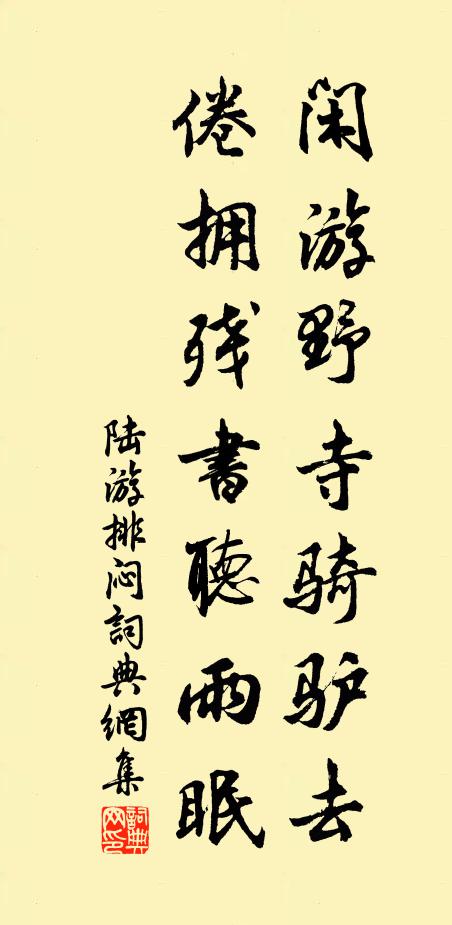 闲游野寺骑驴去
倦拥残書聽雨眠
陆游排闷詞典網集
詞典网印